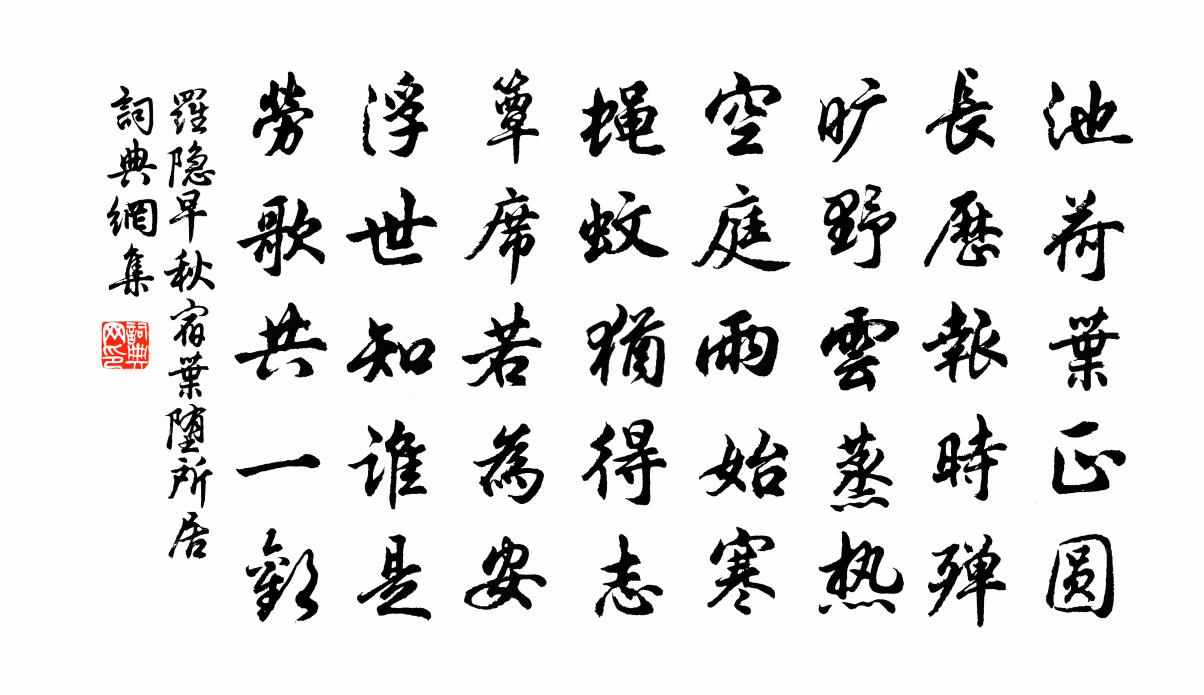 池荷葉正圆
長歷報時殫
旷野雲蒸热
空庭雨始寒
蝇蚊猶得志
簟席若為安
浮世知誰是
勞歌共一歡
羅隐早秋宿葉堕所居
詞典網集
詞典
网印